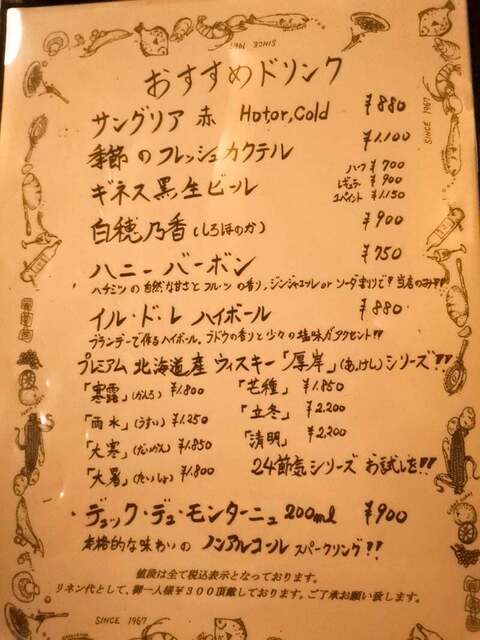 SINCE 1967
おすすめドリンク
サングリア 赤 Hotor,Cold ¥880
季節のフレッシュカクテル ¥1.100
ギネス黒生ビール ハーフ ¥700
レギュラー ¥900
1パイント ¥1.150
白穂乃香(しろほのか) ¥900
ハニーバーボン ¥750
ハチミツの自然な甘さとフルーツの香り。ジンジャエール or ソーダ割りで!! 当店のみ!!
イル・ド・レ ハイボール ¥880
ブランデーで作るハイボール。ブドウの香りと少々の塩味がアクセント!!
プレミアム北海道産ウィスキー「厚岸」(あっけし)シリーズ!!
「寒露」(かんろ) ¥1.800 「芒種」 ¥1.850
「雨水」(うすい) ¥1.250 「立冬」 ¥2.200
「大寒」(だいかん) ¥1.850 「清明」 ¥2.200
「大暑」(たいしょ) ¥1.800 24節気シリーズ お試しを!!
デュック・デュ・モンターニュ 200ml ¥900
本格的な味わいの ノンアルコール スパークリング!!
値段は全て税込表示となっております。
リネン代として、御一人様¥300頂戴しております。ご了承お願い致します。
SINCE 1967
SINCE 1967